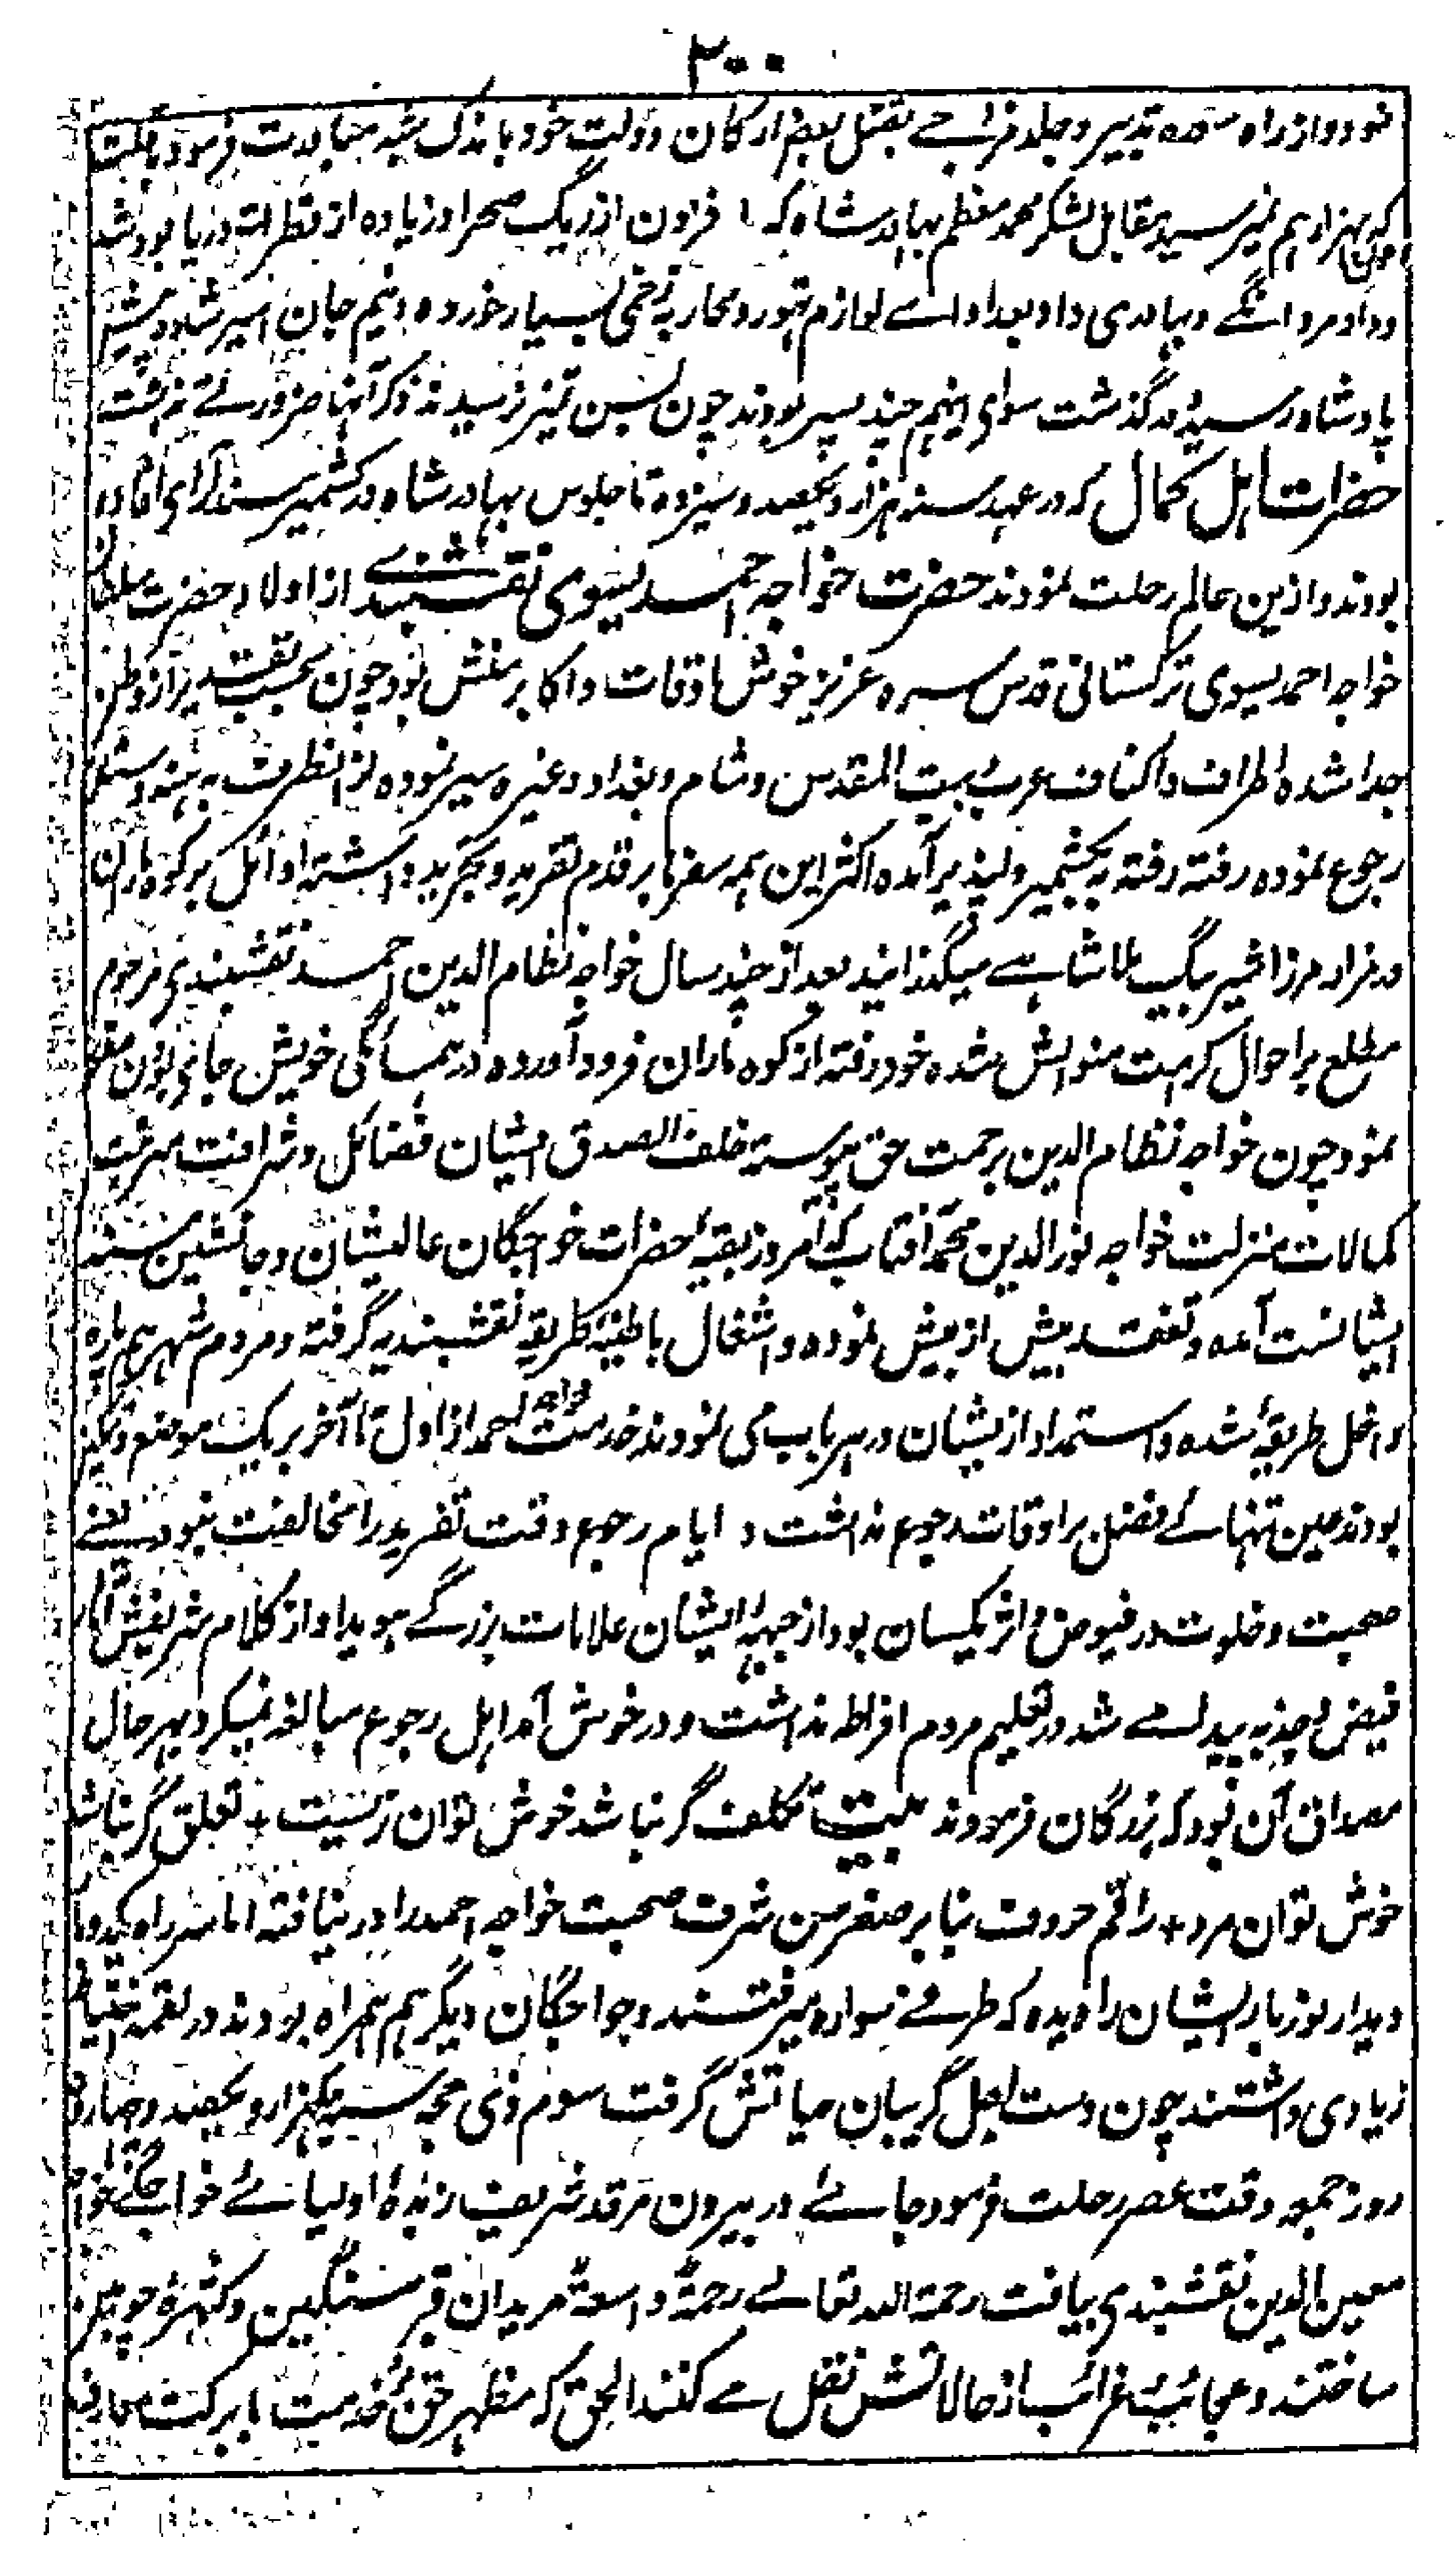 ۳۰۰
نمود و از راه سوء تدبیر و جلد مزاجے بقتل بعض ارکان دولت خود باندک شبه مبادرت فرمود
که بهزار هم نمیرسید بمقابل لشکر محمد معظم بهادر شاه که فزون از ریگ صحرا و زیاده از قطرات دریا بود شد
و داد مردانگے و بهادری داد و بعد ادائے لوازم تهور و محاربه زخمی بسیار خورده و نیم جان اسیر شده پیش
پادشاه رسیده درگذشت سوای اینهم چند پسر بودند چون بسن تمیز نرسیدند ذکر آنها ضرورتے نداشت
حضرات اهل کمال که در عهد سنه هزار و یکصد و سیزده تا جلوس بهادر شاه در کشمیر مسند آرای افاده
بودند و ازین عالم رحلت نمودند حضرت خواجه احمد یسوی نقشبندے از اولاد حضرت سلطان
خواجه احمد یسوی ترکستانی قدس سره عزیز خوش اوقات و اکابر منش بود چون بحسب تقدیر از وطن
جدا شده اطراف و اکناف عرب و بیت المقدس و شام و بغداد و غیره سیر نموده از انطرف به هندوستان
رجوع نموده رفته رفته به کشمیر دلپذیر آمده اکثر این همه سفرها بر قدم تفرید و تجرید داشته اوائل بر کوه ماران
در مزار مرزا شیر بیگ ملا شاہے میگذرانید بعد از چند سال خواجه نظام الدین احمد نقشبندی مرحوم
مطلع بر احوال کرامت منوالش شده خود رفته از کوه ماران فرود آورده در همسائگی خویش جای بودن مقرر
نمود چون خواجه نظام الدین برحمت حق پیوست خلف الصدق ایشان فضائل و شرافت مرتبت
کمالات منزلت خواجه نور الدین محمد آفتاب که امروز بقیهٔ حضرات خواجگان عالیشان و جانشین مسند
ایشانست آمد و تفقد بیش از بیش نموده و اشغال باطنیه طریقه نقشبندیه گرفته و مردم شهر هم پاره
داخل طریقه شده و استمداد از یشان در هر باب می نمودند خدمت خواجه احمد از اول تا آخر بر یک موضع
بودند عین تنهائے فضل بر اوقات رجوع نداشت و ایام رجوع وقت تفرید را مخالفت نبود یعنے
صحبت و خلوت در فیوض و اثر یکسان بود از جبههٔ ایشان علامات بزرگے هویدا و از کلام شریفش آثار
فیض و جذبه پیدا مے شد در تعلیم مردم افراط نداشت و در خوش آمد اهل رجوع مبالغه نمیکرد بهر حال
مصداق آن بود که بزرگان فرمودند بیت تکلف گر نباشد خوش توان زیست + تعلق گر نباشد
خوش توان مرد + راقم حروف بنا بر صغر سن شرف صحبت خواجه احمد را در نیافته اما سر راه یکدو بار
دیدار نور بار ایشان را دیده که طرفے سواره میرفتند و خواجگان دیگر هم همراه بودند در لقمه احتیاط
زیادی داشتند چون دست اجل گریبان حیاتش گرفت سوم ذی حجه سنه یکهزار و یکصد و چهارده
روز جمعه وقت عصر رحلت فرمود جائے در بیرون مرقد شریف زبدة اولیائے خواجگے خواجه
معین الدین نقشبندی بیافت رحمة الله تعالے رحمة واسعة مریدان قبر سنگین و کٹهرهٔ چوبین
ساختند و عجائب غرائب از حالاتش نقل مے کنند الحق که مظهر حق خدمت با برکت معارف